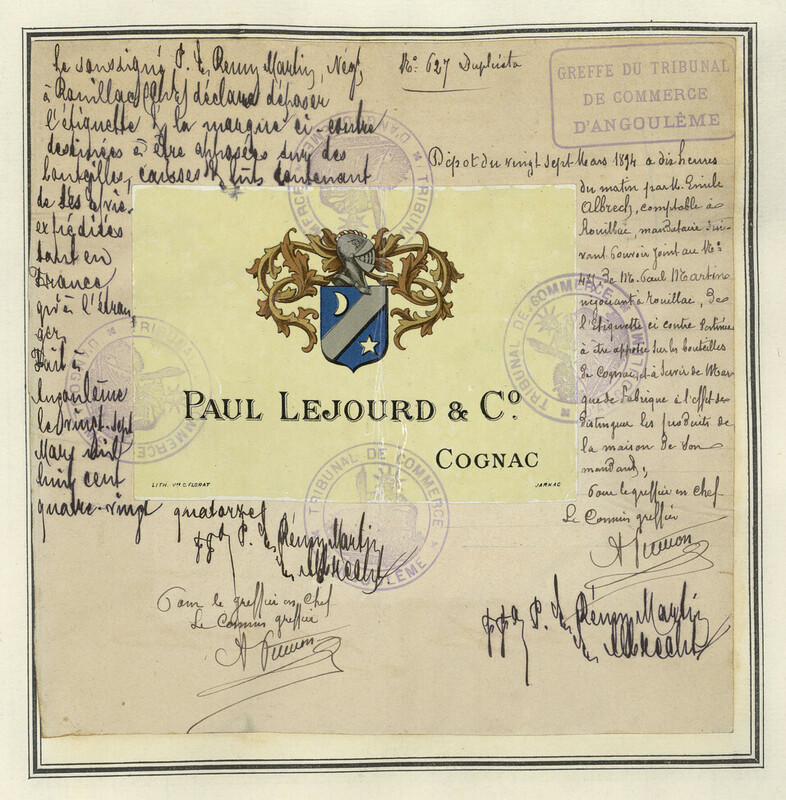 Le soussigné P. E. Remy Martin, Négt
à Rouillac (Chte) déclare déposer
l'étiquette à la marque ci-contre
destinées à être apposées sur des
bouteilles, caisses & fûts contenant
de ses
expédiées
tant en
France,
qu'à l'étran
ger.
Fait à
Angoulême
le vingt-sept
Mars mil
huit cent
quatre-vingt quatorze
No 627 Duplicata
GREFFE DU TRIBUNAL
DE COMMERCE
D'ANGOULÊME
Dépôt du vingt sept Mars 1894 à dix heures
du matin par M. Emile
Albrech, comptable à
Rouillac, mandataire sui-
vant Pouvoir joint au No
de M. Paul Martin
négociant à Rouillac, de
l'Etiquette ci contre destinée
à être apposée sur les bouteilles
de Cognac, et à servir de Mar
que de Fabrique à l'effet de
distinguer les produits de
la maison de son
mandant,
Pour le greffier en chef
Le Commis greffier
PAUL LEJOURD & Co.
COGNAC
LITH. Vve C. FLORAT
JARNAC
TRIBUNAL DE COMMERCE
D'ANGOULÊME
ppon P. E. Rémy Martin
Albrecht
Pour le greffier en chef
Le Commis greffier
ppon P. E. Rémy Martin
Albrecht